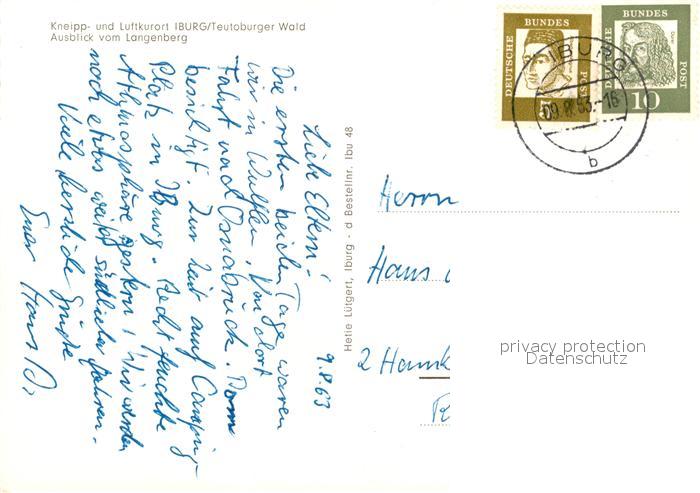 Kneipp- und Luftkurort IBURG/Teutoburger Wald
Ausblick vom Langenberg
9.8.63
Liebe Eltern!
Die ersten beiden Tage waren
wir in Wulfen. Von dort
Fahrt nach Osnabrück. Dom
besichtigt. Zur Zeit auf Camping-
Platz in Iburg. Recht feuchte
Athmosphäre gestern! Wir werden
noch etwas weiter südlicher fahren.
Viele herzliche Grüße
Euer Hans
Helle Lütgert, Iburg - d Bestellnr. Ibu 48
DEUTSCHE
BUNDES
POST
5
DEUTSCHE
BUNDES
POST
10
IBURG
09.8.63-16
b
Herrn
Hans
2 Hamb
privacy protection
Datenschutz